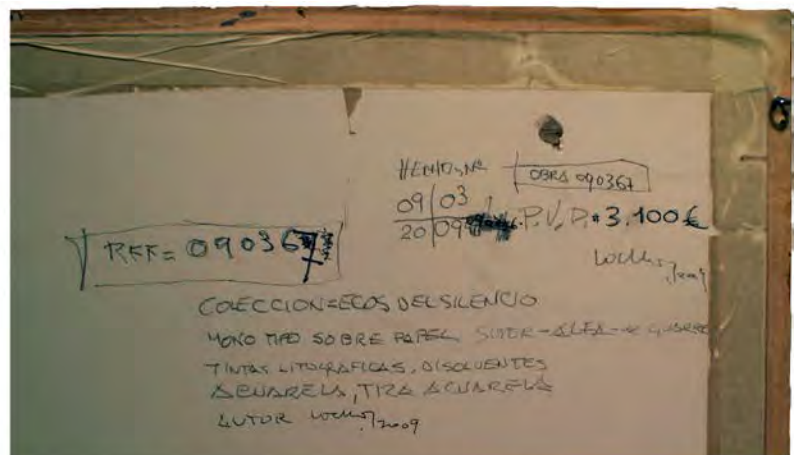 OBRA 090367
09 | 03
20 | 09 P.V.P. 3.100 €
REF = 090367
COLECCION = ECOS DEL SILENCIO
MONO TIPO SOBRE PAPEL SUPER-ALFA
TINTAS LITOGRAFICAS, DISOLVENTES
ACUARELA, TIZA ACUARELA
AUTOR 2009